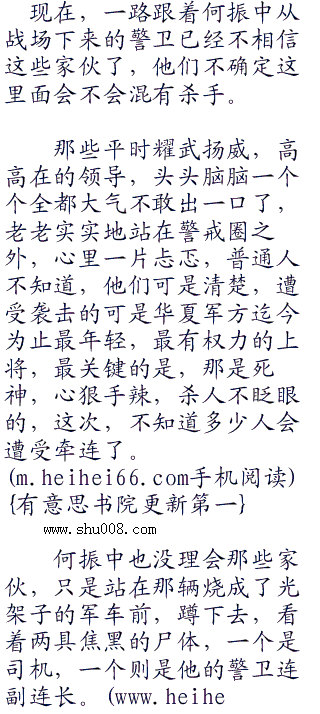 现在，一路跟着何振中从
战场下来的警卫已经不相信
这些家伙了，他们不确定这
里面会不会混有杀手。
那些平时耀武扬威，高
高在的领导，头头脑脑一个
个全都大气不敢出一口了，
老老实实地站在警戒圈之
外，心里一片忐忑，普通人
不知道，他们可是清楚，遭
受袭击的可是华夏军方迄今
为止最年轻，最有权力的上
将，最关键的是，那是死
神，心狠手辣，杀人不眨眼
的，这次，不知道多少人会
遭受牵连了。
(m.heihei66.com手机阅读)
{有意思书院更新第一}
www.shu008.com
何振中也没理会那些家
伙，只是站在那辆烧成了光
架子的军车前，蹲下去，看
着两具焦黑的尸体，一个是
司机，一个则是他的警卫连
副连长。(www.heihe